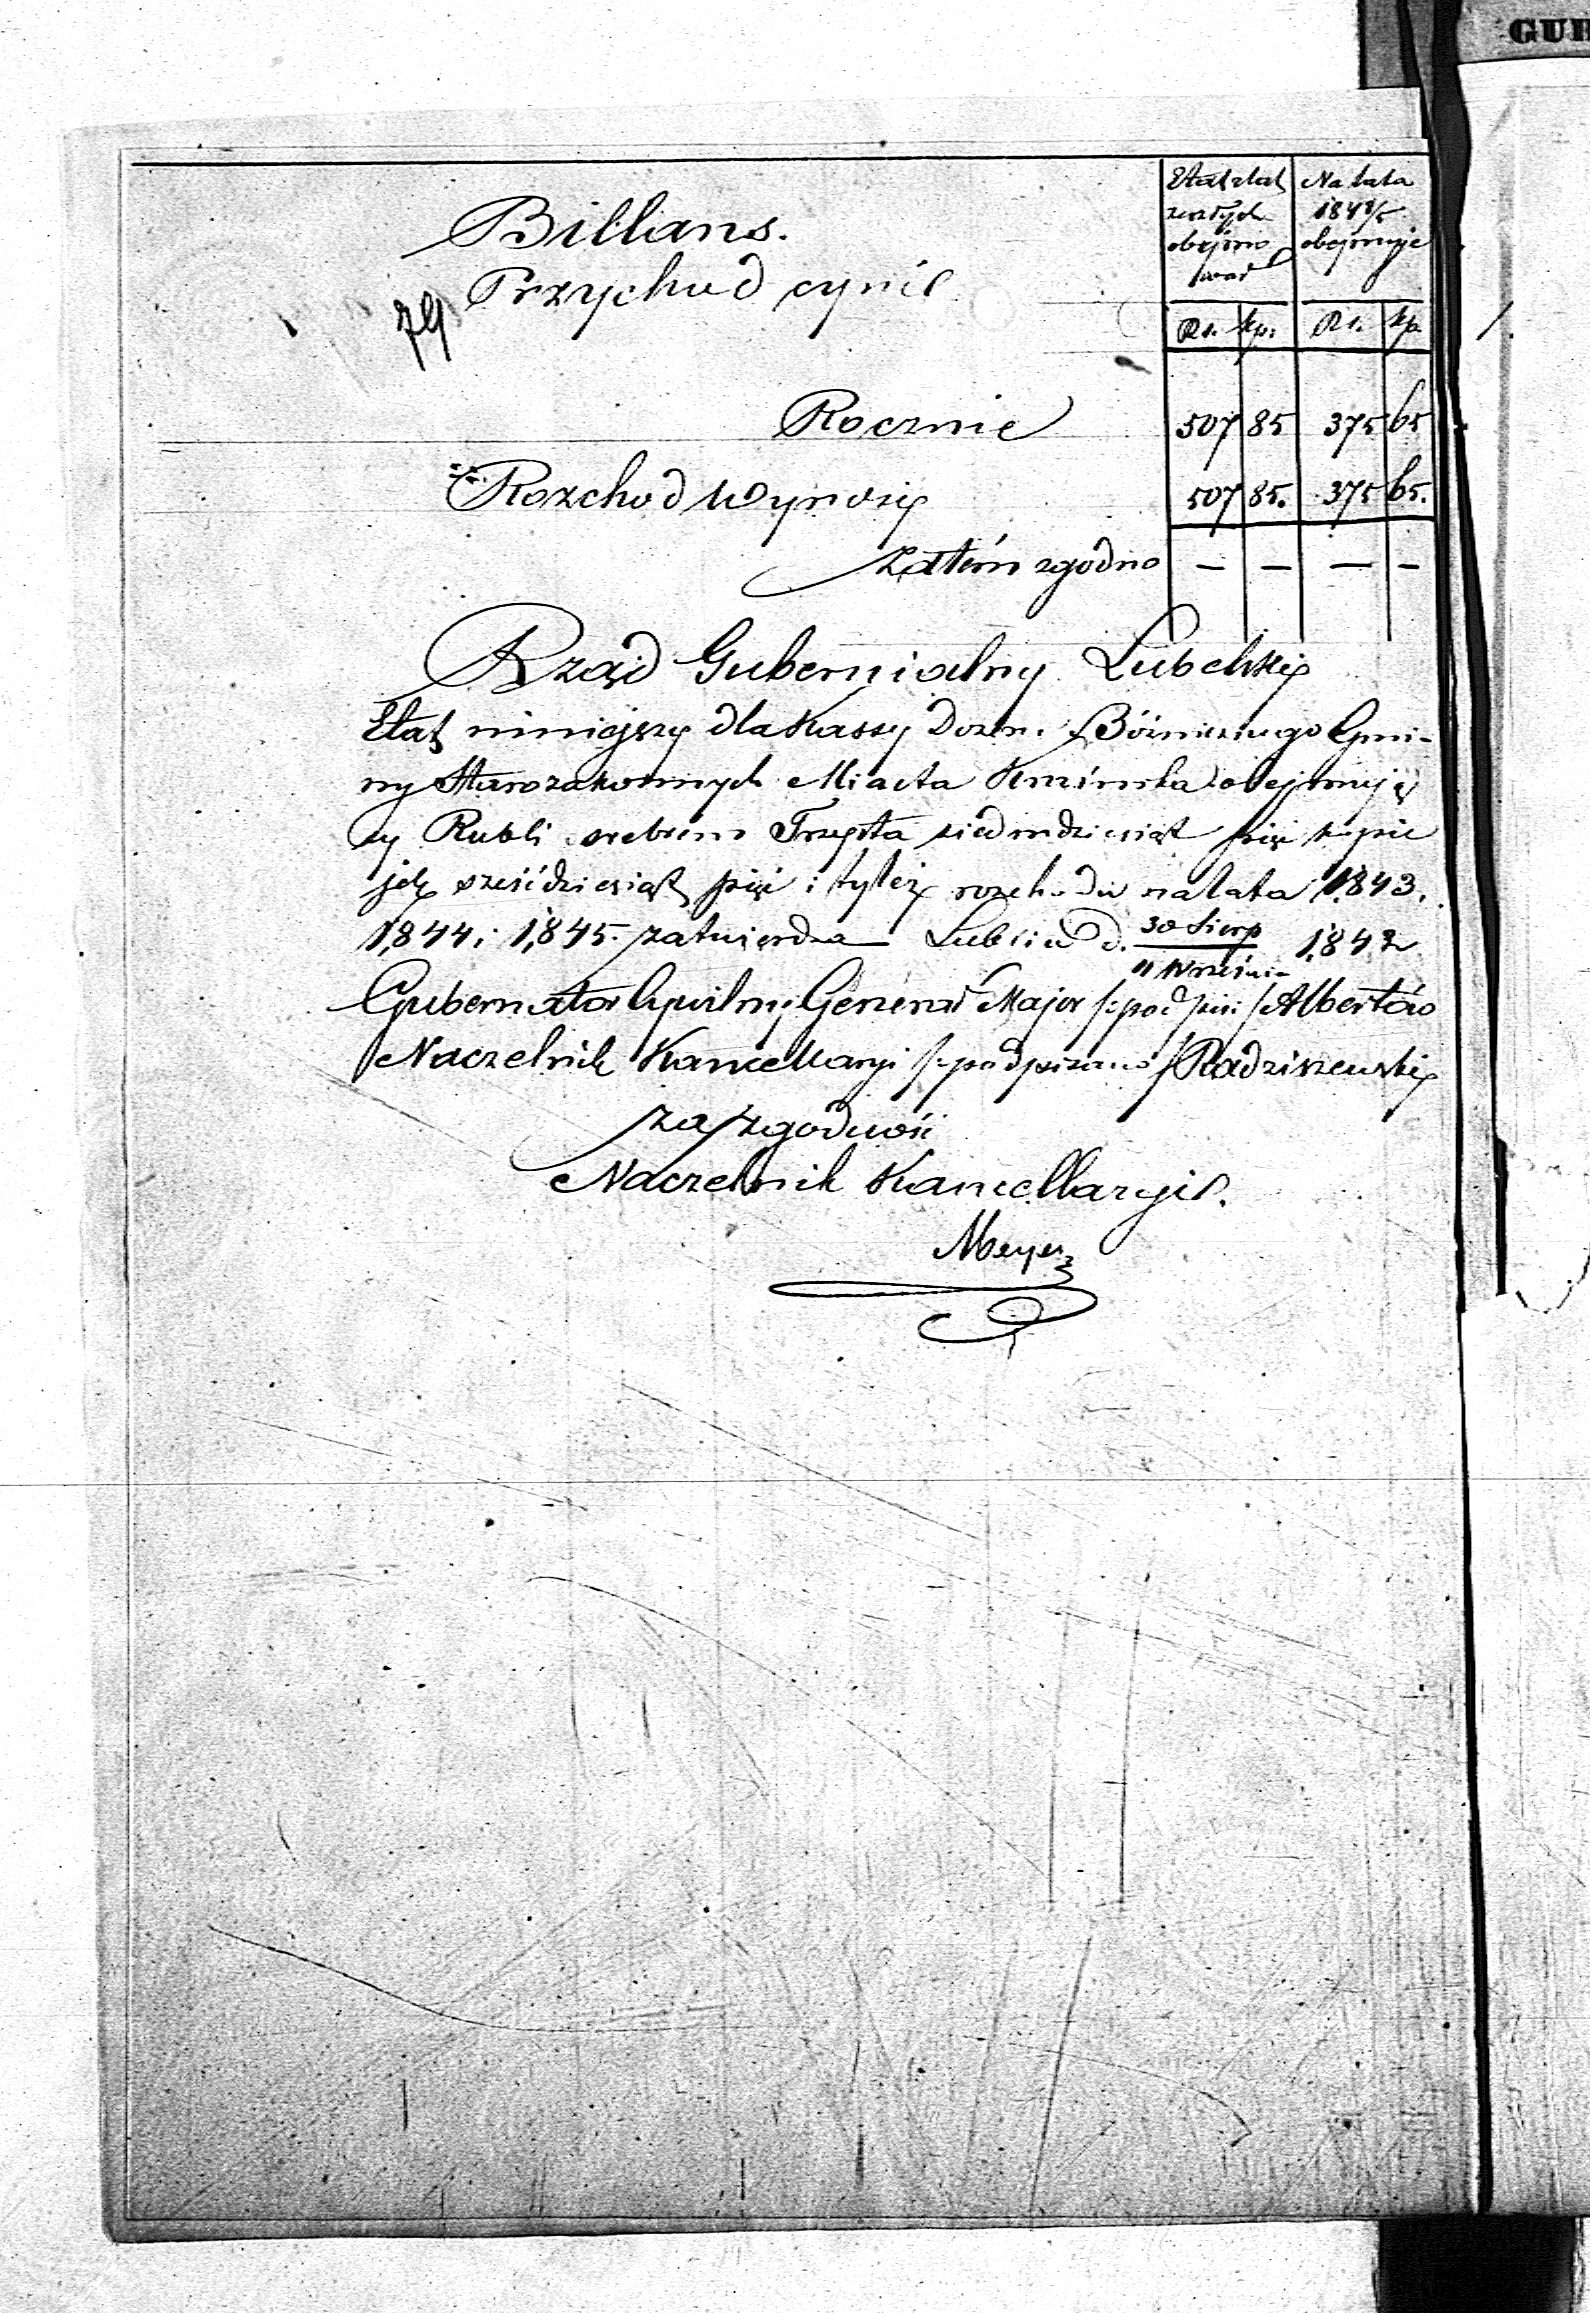 GUB
Etat z lat
zeszłych
obejmo
wał
Na lata
184 3/5
obejmuje
Billans.
Przychod czyni
79
Rs. kp. Rs. kp.
Rocznie 507 85 375 65
Rozchod wynosi 507 85. 375 65.
Zatém zgodno — — — —
Rząd Gubernialny Lubelski
Etat niniejszy dla Kassy Dozn. Bóżnicznego Gmi-
ny Starozakonnych Miasta obejmują
cy Rubli srebrem Trzysta siedmdziesiąt pięć kopie
jek sześćdziesiąt pięć i tyleż rozchodu na lata 1843.
1844 i 1845. zatwierdza Lublin d. 30 Sierp 1842
11 Wrześnie
Gubernator Cywilny Generał Major /:podpisi:/ Albertów
Naczelnik Kancellaryi /:podpisano:/ Radziszewski
za zgodność
Naczelnik Kancellaryi.
Meyer